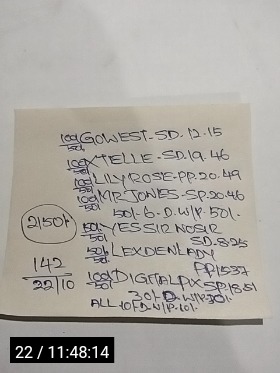 100/50/. GOWEST-SD.12-15
100/50/. XTELLE-SD.19.46
100/50/. LILYROSE-PP.20.49
100/50/. MR JONES-SP.20.46
50/.-6-D.W/P-50/.
50/.50/. YES SIR NO SIR
SD.8.25
50/.50/. LEXDENLADY
PP.15.37
100/50/. DIGITAL PIX SP.18.51
30/.-D.W/P.30/.
ALL-10 FD-W/P.10/.
2150/.
142
22/10
22 / 11:48:14